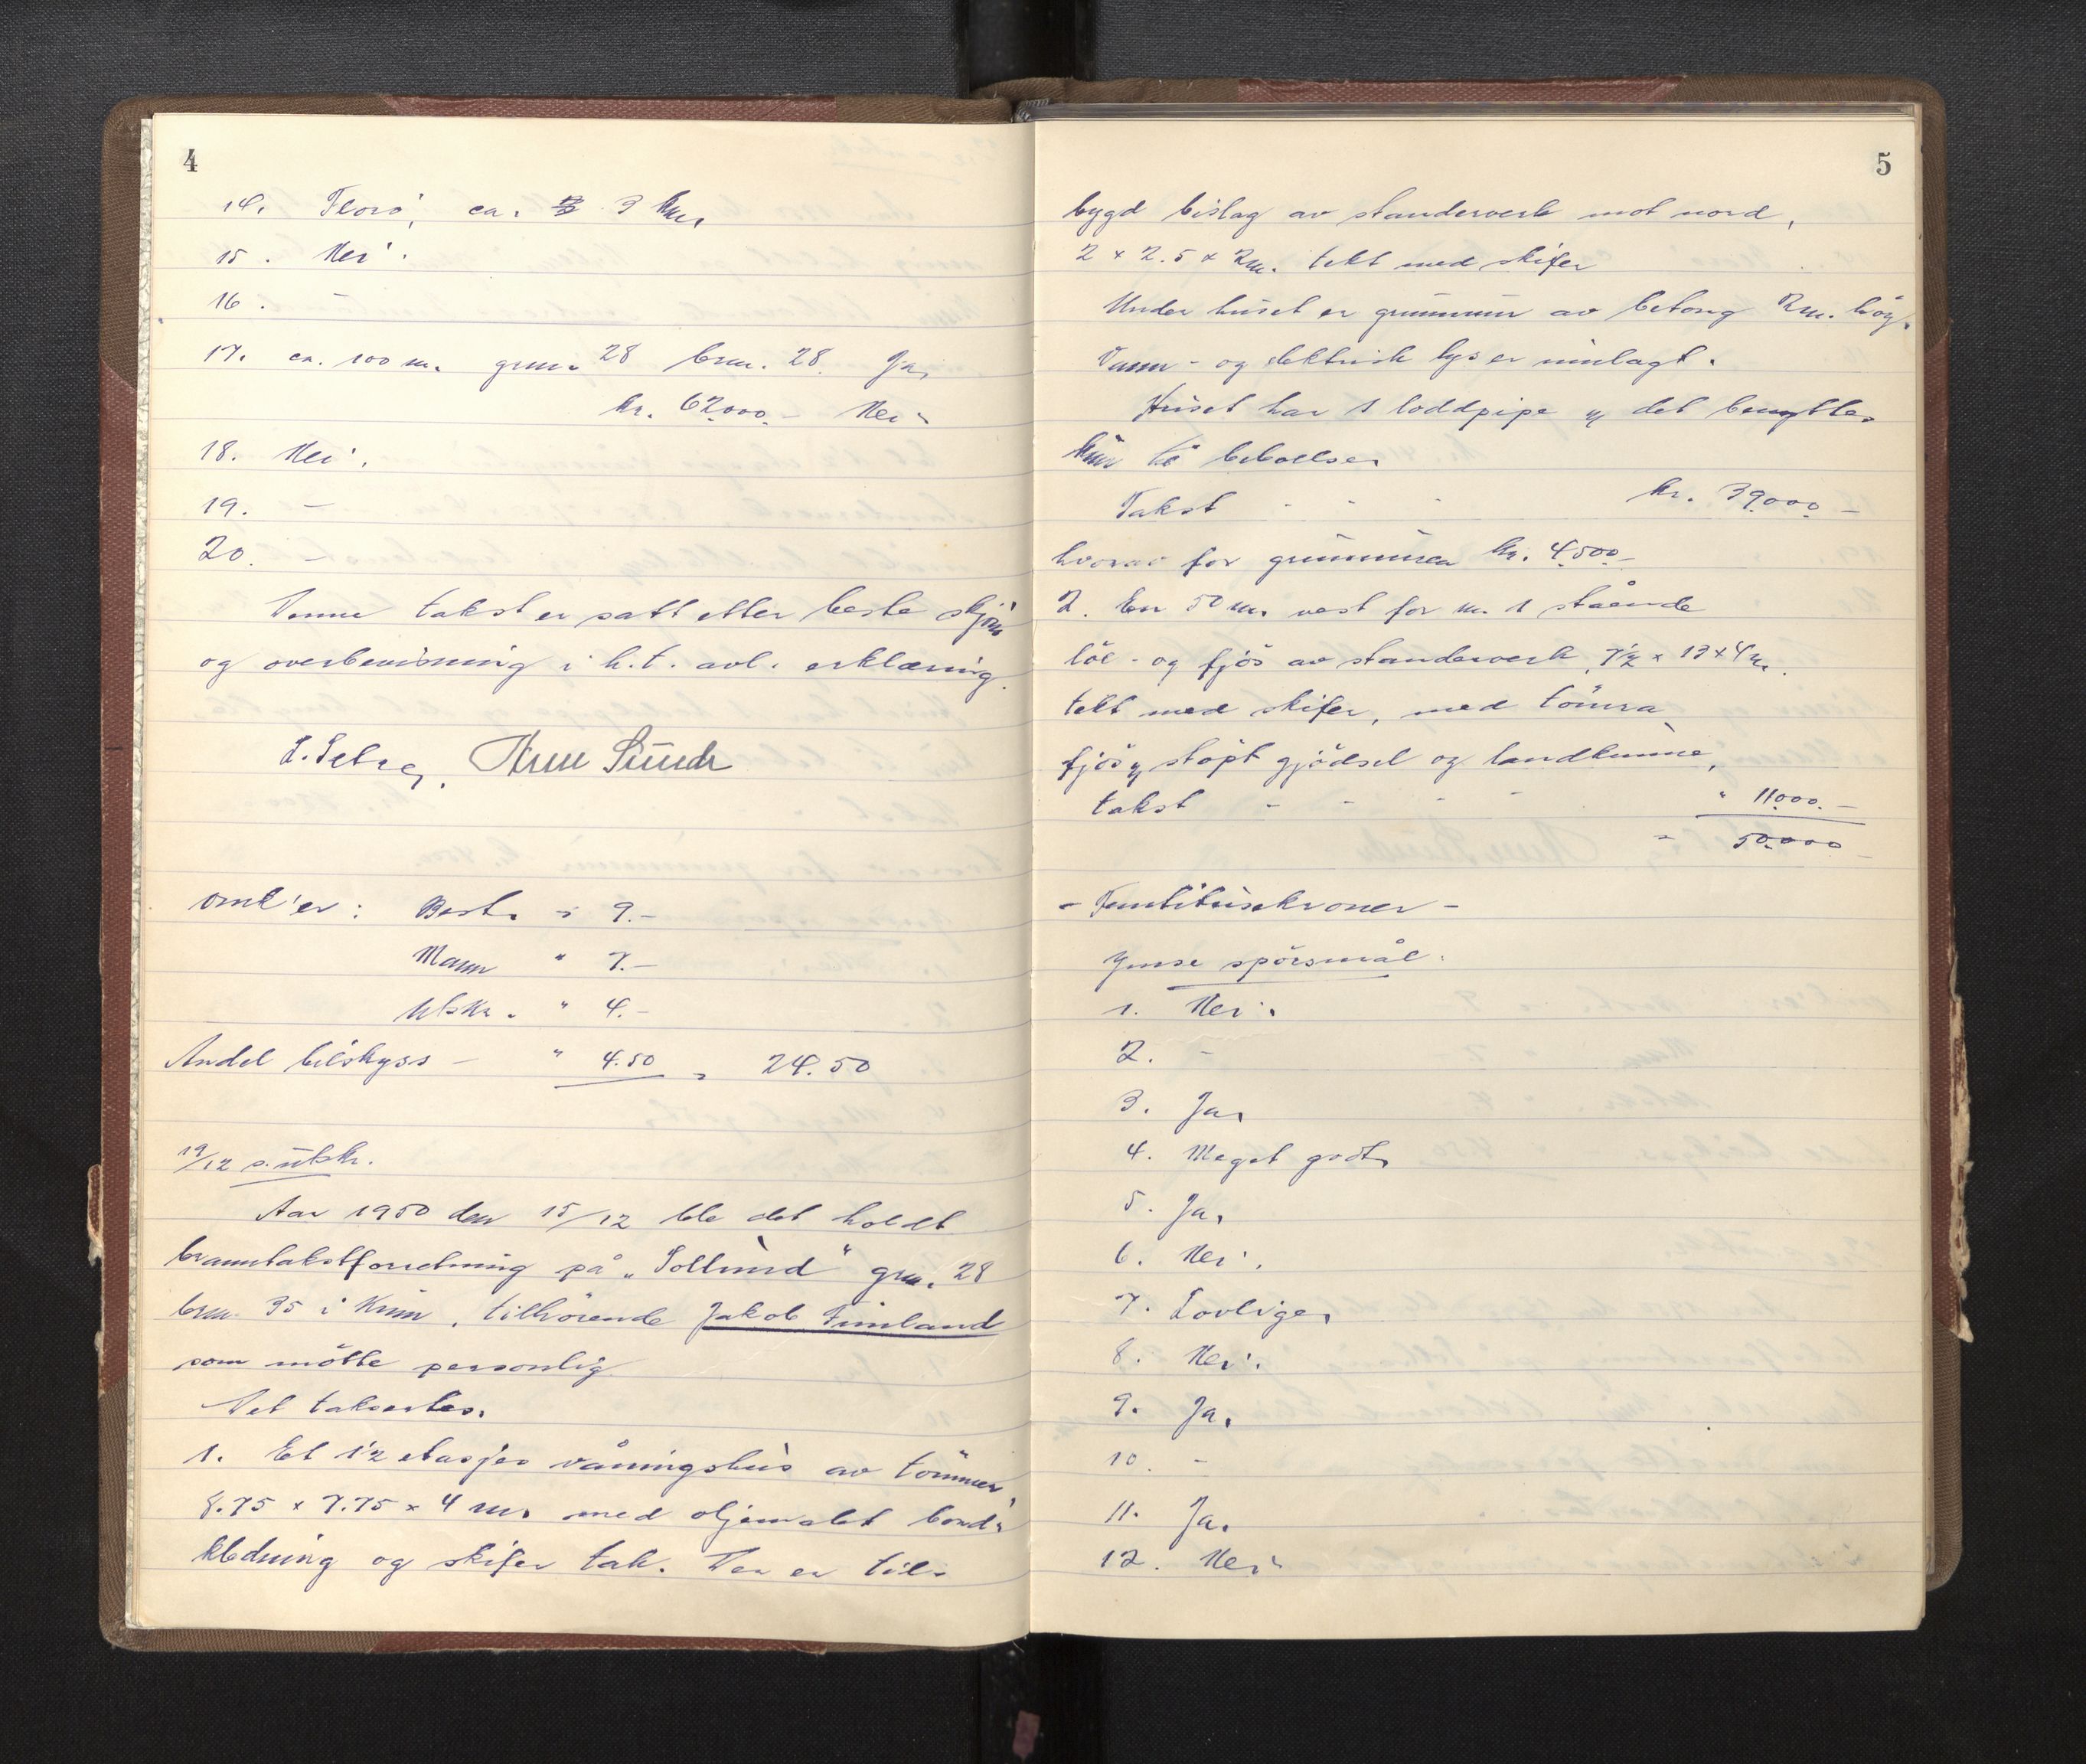 4
14. Florö, ca. 3 km.
15. Nei.
16. –
17. ca. 100 m. grnr. 28 brnr. 28. Ja.
kr. 62000.– Nei.
18. Nei.
19. –
20. –
Denne takst er satt etter beste skjönn
og overbevisning i h.t. avl. erklæring.
Omk'er: Best. - 9.–
Mann " 7.–
Utskr. " 4.–
Andel bilskyss – " 4.50 = 24.50
19/12 s. utskr.
Aar 1950 den 15/12 ble det holdt
branntakstforretning på „Sollund" grnr. 28
brnr. 35 i Kinn, tilhörende Jakob Timland
som mötte personlig
Det takseres.
1. Et 1½ etasjes våningshus av tömmer,
8.75 x 7.75 x 4 m. med oljemalt bord-
kledning og skifer tak. Der er til-
5
bygd bislag av standerverk mot nord,
2 x 2.5 x 2m. tekt med skifer
Under huset er grunnmur av betong 2m. höy.
Vann- og elektrisk lys er innlagt.
Huset har 1 loddpipe og det benyttes
kun til beboelse.
Takst - - - kr. 39000.–
hvorav for grunnmuren kr. 4500.–
2. En 50 m. vest for nr. 1 stående
löe- og fjös av standerverk, 7½ x 13 x 4 m.
tekt med skifer, med tömra
fjös og stöpt gjödsel og landkumme,
takst - - - - " 11000.–
" 50000.–
– Femtitusekroner –
Ymse spörsmål.
1. Nei.
2. –
3. Ja.
4. Meget godt.
5. Ja.
6. Nei.
7. Lovlige.
8. Nei.
9. Ja.
10. –
11. Ja.
12. Nei.